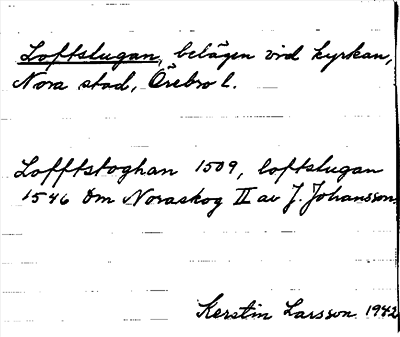 Loftslugan, belägen vid kyrkan,
Nora stad, Örebro l.
Lofftstoghan 1509, loftslugan
1546 Om Noraskog II av J. Johansson.
Kerstin Larsson 1942